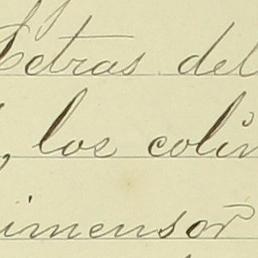 Letras del
, los colin
imensor